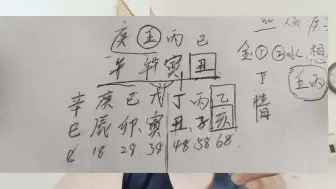 庚 壬 丙 己
午 午 寅 丑
辛 庚 己 戊 丁 丙 乙
巳 辰 卯 寅 丑 子 亥
8 18 28 38 48 58 68
金 ① ② 水 想
丁 壬丙
情